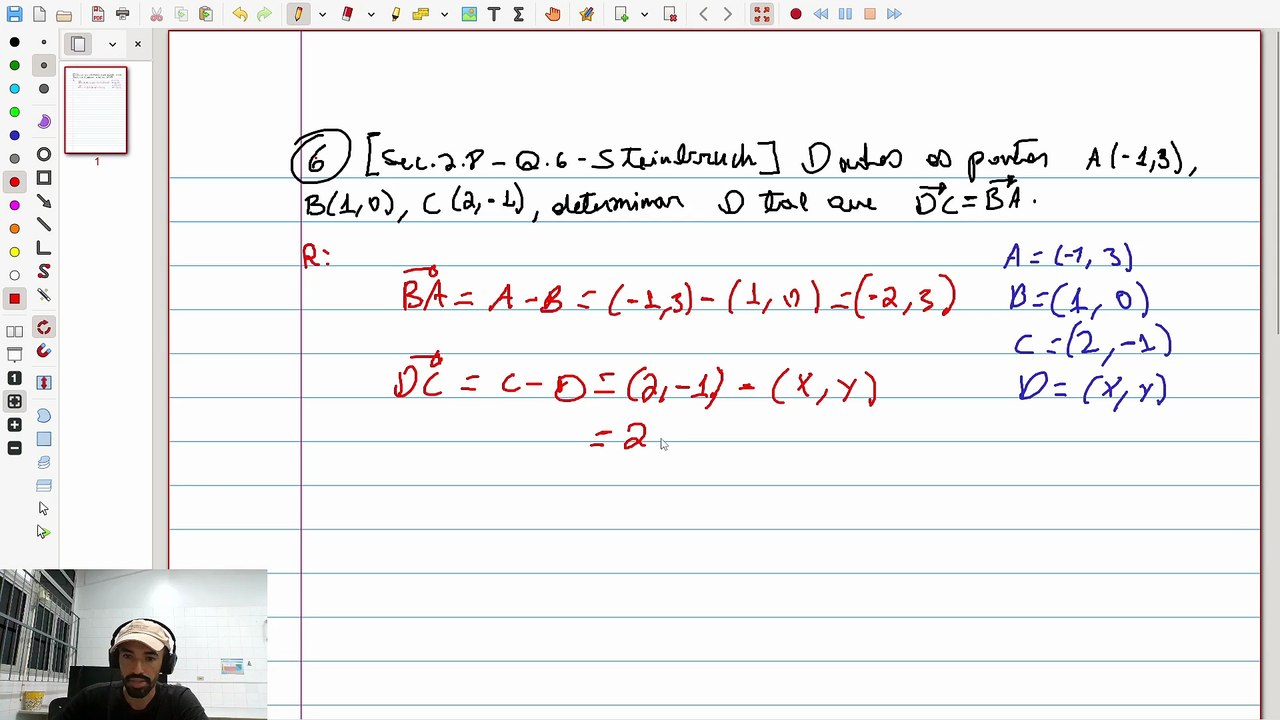 6 [Sec.2.8 - Q.6 - Steinbruch] Dados os pontos A(-1,3),
B(1,0), C(2,-1), determinar D tal que DC = BA.
R:
BA = A - B = (-1,3) - (1,0) = (-2,3)
DC = C - D = (2,-1) - (X,Y)
= 2
A = (-1, 3)
B = (1, 0)
C = (2, -1)
D = (X, Y)
1